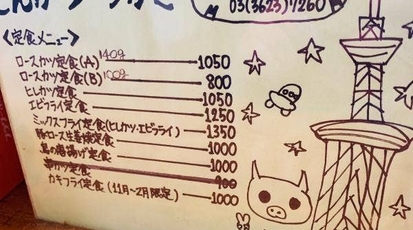 とんかつ
03(3623)7260
<定食メニュー>
ロースカツ定食(A) 140g 1050
ロースカツ定食(B) 100g 800
ヒレカツ定食 1050
エビフライ定食 1250
ミックスフライ定食(ヒレカツ・エビフライ) 1350
豚ロース生姜焼定食 1000
鳥の唐揚げ定食 1000
串カツ定食 900
カキフライ定食(11月〜2月限定) 1000